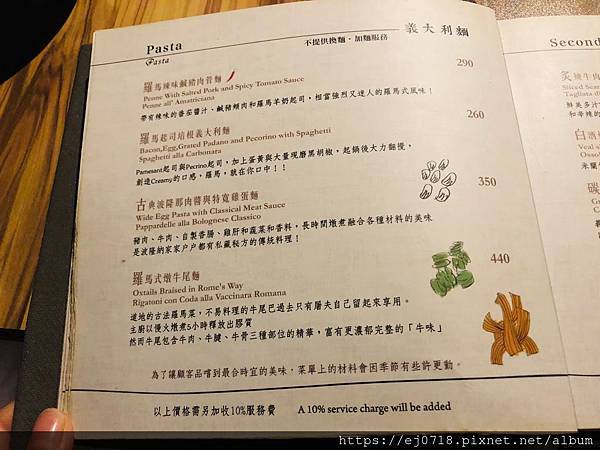 Pasta
Pasta
不提供換麵、加麵服務
義大利麵
290
羅馬辣味鹹豬肉管麵
Penne With Salted Pork and Spicy Tomato Sauce
Penne all' Amatriciana
帶有辣味的番茄醬汁、鹹豬頰肉和羅馬羊奶起司，相當強烈又迷人的羅馬式風味！
260
羅馬起司培根義大利麵
Bacon,Egg,Grated Padano and Pecorino with Spaghetti
Spaghetti alla Carbonara
Pamesant起司與Pecrino起司，加上蛋黃與大量現磨黑胡椒，起鍋後大力翻攪，
創造Creamy的口感，羅馬，就在你口中！！
350
古典波隆那肉醬與特寬雞蛋麵
Wide Egg Pasta with Classical Meat Sauce
Pappardelle alla Bolognese Classico
豬肉、牛肉、自製香腸、雞肝和蔬菜和香料，長時間燉煮融合各種材料的美味
是波隆納家家戶戶都有私藏秘方的傳統料理！
440
羅馬式燉牛尾麵
Oxtails Braised in Rome's Way
Rigatoni con Coda alla Vaccinara Romana
道地的古法羅馬菜，不易料理的牛尾巴過去只有屠夫自己留起來享用。
主廚以慢火燉煮5小時釋放出膠質
然而牛尾包含牛肉、牛腱、牛骨三種部位的精華，富有更濃郁完整的「牛味」
為了讓顧客品嚐到最合時宜的美味，菜單上的材料會因季節有些許更動。
以上價格需另加收10%服務費
A 10% service charge will be added
Second
炙辣牛肉
Sliced Sear
Tagliata di
鮮美多汁
和辛辣的
白酒
Veal s
Osso
米蘭
碳
G
C
https://ej0718.pixnet.net/album